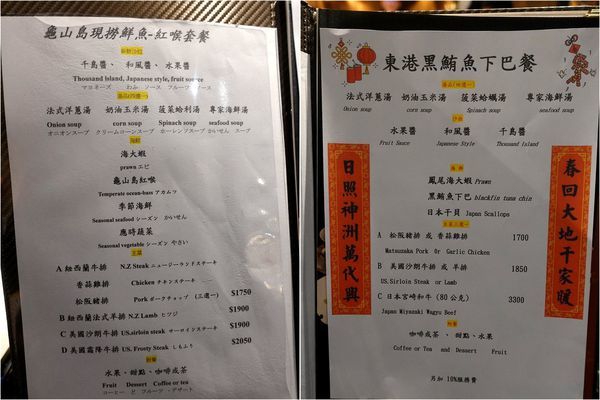 龜山島現撈鮮魚-紅喉套餐
千島醬、 和風醬、 水果醬
Thousand island, Japanese style, fruit source
マヨネーズ わふ ソース フルーツ ソース
法式洋蔥湯 奶油玉米湯 菠菜蛤利湯 專家海鮮湯
Onion soup corn soup Spinach soup seafood soup
オニオンスープ クリームコーンスープ ホーレンソブスープ かいせん スープ
海大蝦
prawn エビ
龜山島紅喉
Temperate ocean-bass アカムツ
季節海鮮
Seasonal seafood シーズン かいせん
應時蔬菜
Seasonal vegetable シーズン やさい
主菜
A 紐西蘭牛排 N.Z Steak ニュージーランドステーキ
香蒜雞排 Chicken チキンステーキ
松阪豬排 Pork ポークチョップ (三選一) $1750
B 紐西蘭法式羊排 N.Z Lamb ヒツジ $1900
C 美國沙朗牛排 US.sirloin steak サーロインステーキ $1900
D 美國霜降牛排 US. Frosty Steak しもふり $2050
水果、甜點、咖啡或茶
Fruit Dessert Coffee or tea
コーヒー と フルーツ ・デザート
東港黑鮪魚下巴餐
法式洋蔥湯 奶油玉米湯 菠菜蛤蠣湯 專家海鮮湯
Onion soup corn soup Spinach soup seafood soup
沙拉
水果醬 和風醬 千島醬
Fruit Sauce Japanese Style Thousand Island
海鮮
鳳尾海大蝦 Prawn
黑鮪魚下巴 blackfin tuna chin
日本干貝 Japan Scallops
A 松阪豬排 或 香蒜雞排 1700
Matsuzaka Pork Or Garlic Chicken
B 美國沙朗牛排 或 羊排 1850
US.Sirloin Steak or Lamb
C 日本宮崎和牛 (80公克) 3300
Japan Miyazaki Wagyu Beef
附餐
咖啡或茶 、甜點、水果
Coffee or Tea and Dessert Fruit
另加 10%服務費
日照神洲萬代興
春回大地千家暖